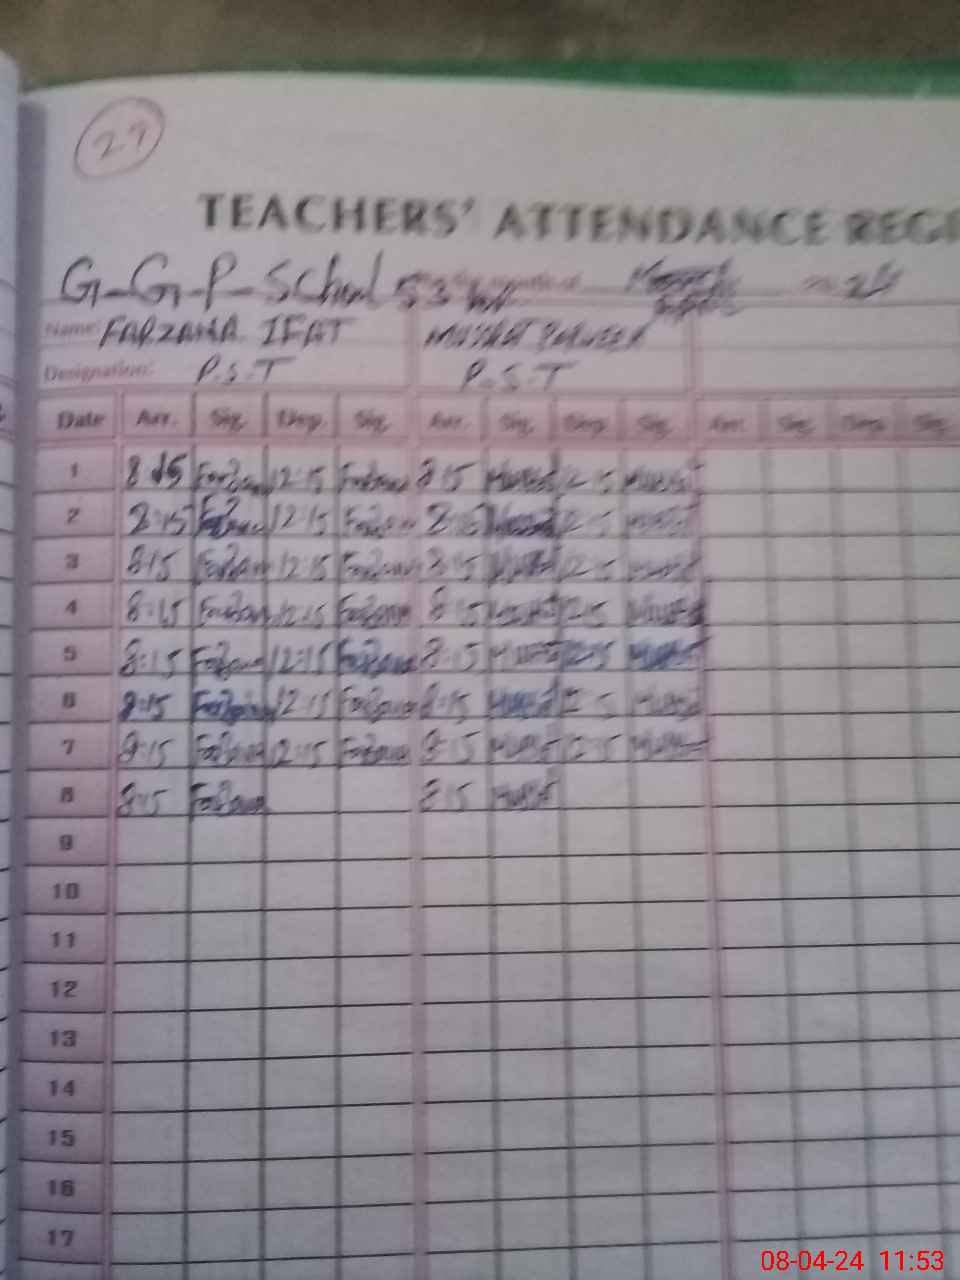 27
TEACHERS' ATTENDANCE REGI
G-G-P-School 53
24
Name: FARZANA IFAT MUSRAT PARVEEN
Designation: P.S.T P.S.T
Date Arr. Sig. Dep. Sig. Arr. Sig. Dep. Sig. Arr. Sig. Dep. Sig.
1 8 15 Farzana 12:15 Farzana 8 15 Musrat 12 15 Musrat
2 8:15 Farzana 12:15 Farzana 8:15 Musrat 12:15 Musrat
3 8:15 Farzana 12:15 Farzana 8:15 Musrat 12:15 Musrat
4 8:15 Farzana 12:15 Farzana 8:15 Musrat 12:15 Musrat
5 8:15 Farzana 12:15 Farzana 8:15 Musrat 12:15 Musrat
6 8:15 Farzana 12:15 Farzana 8:15 Musrat 12:15 Musrat
7 8:15 Farzana 12:15 Farzana 8:15 Musrat 12:15 Musrat
8 8:15 Farzana 8:15 Musrat
9
10
11
12
13
14
15
16
17
08-04-24 11:53